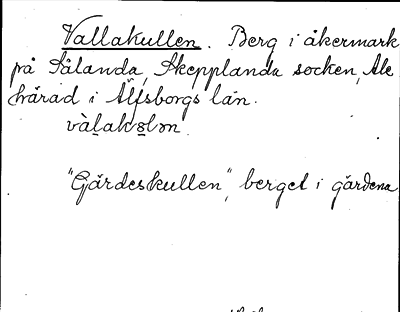 Vallakullen. Berg i åkermark
på Sälanda, Skepplanda socken, Ale
härad i Älfsborgs län.
vàlakolən
"Gärdeskullen", berget i gärdena